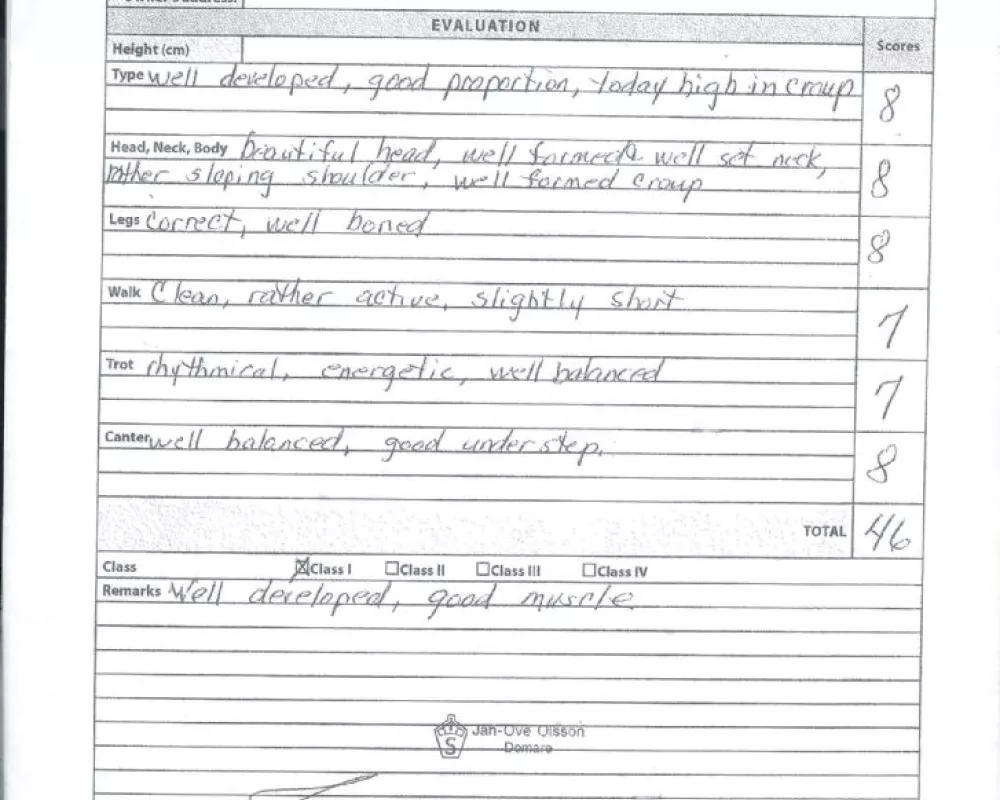 EVALUATION
Scores
Height (cm)
Type well developed, good proportion, today high in croup
8
Head, Neck, Body beautiful head, well formed & well set neck,
rather sloping shoulder, well formed croup
8
Legs correct, well boned
8
Walk Clean, rather active, slightly short
7
Trot rhythmical, energetic, well balanced
7
Canter well balanced, good understep.
8
TOTAL 46
Class ☒Class I ☐Class II ☐Class III ☐Class IV
Remarks Well developed, good muscle
S
Jan-Ove Olsson
Domare